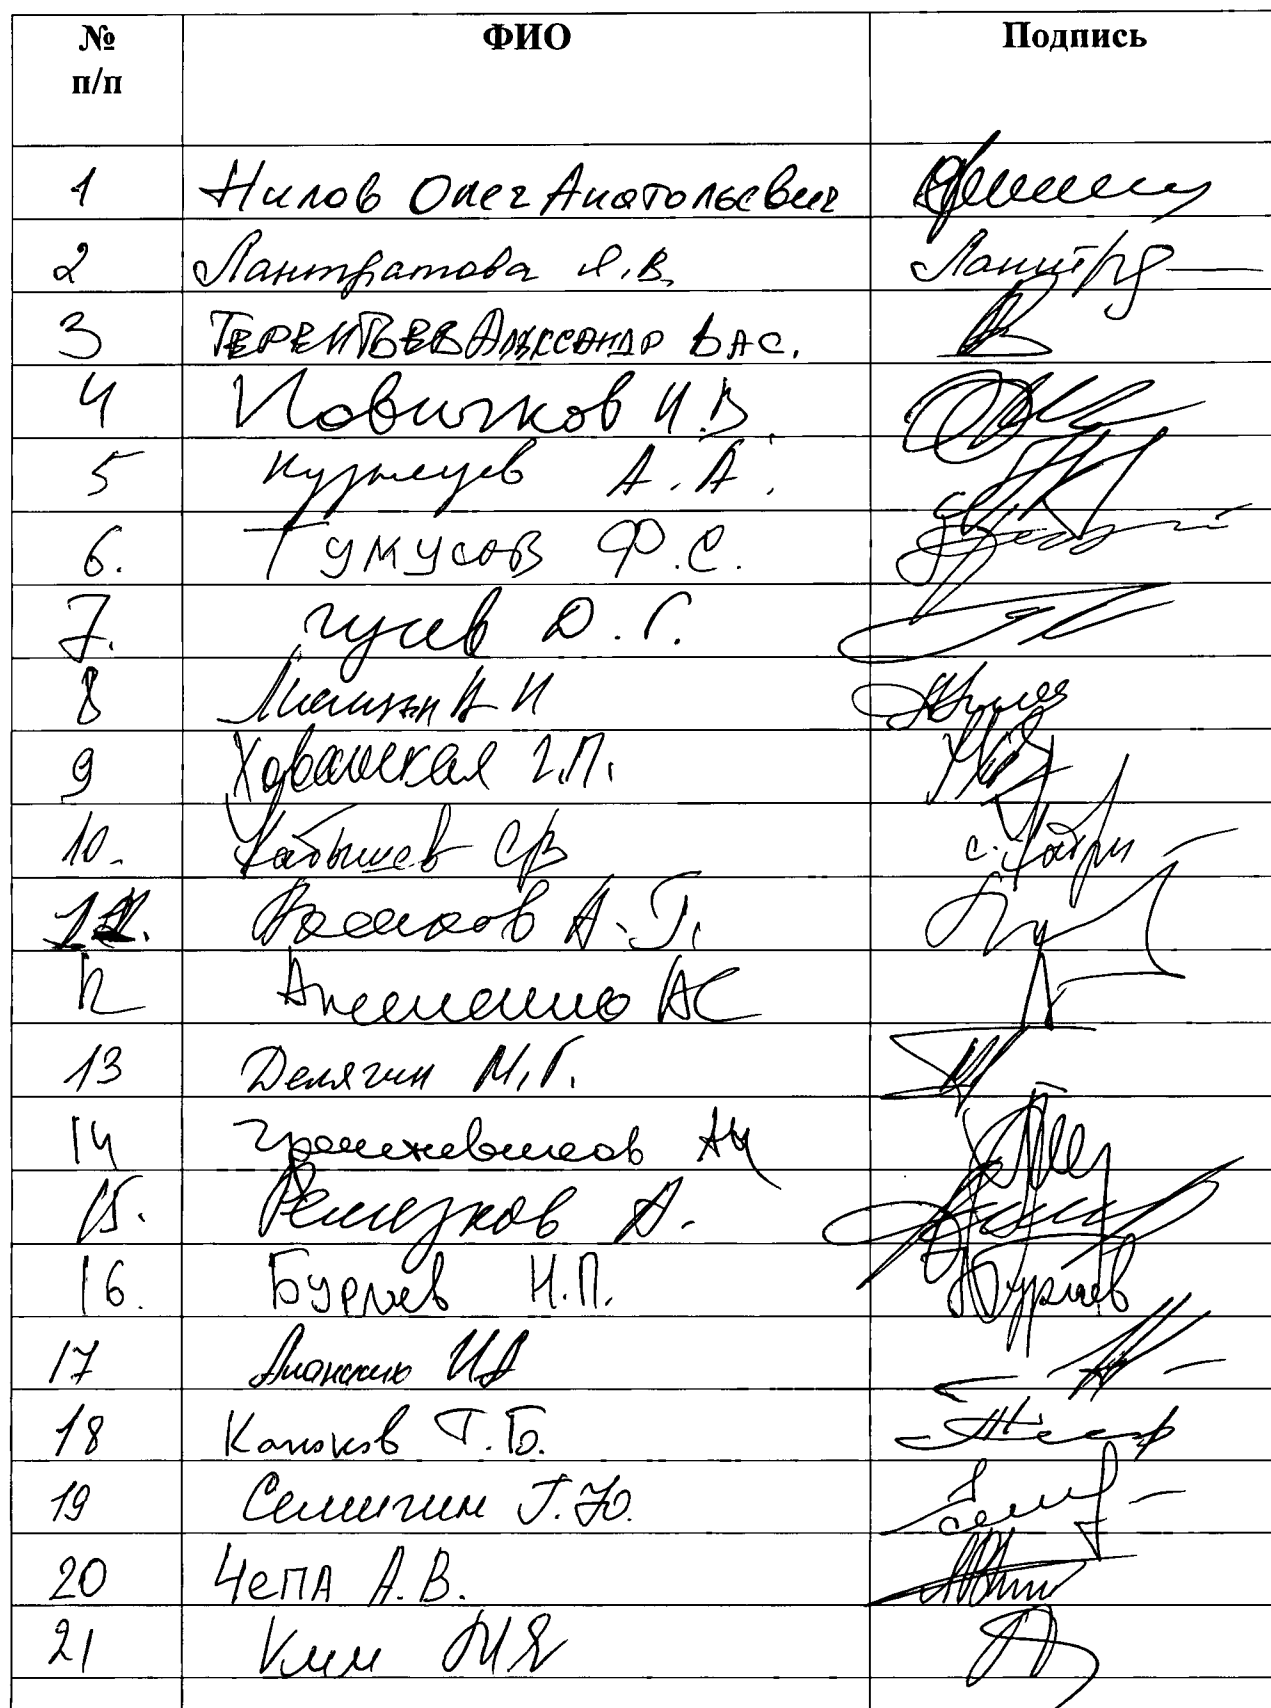 № п/п ФИО Подпись
1 Нилов Олег Анатольевич
2 Лантратова Я.В.
3 Терентьев Александр Вас.
4 Новичков Н.В.
5 Кузнецов А.А.
6. Тумусов Ф.С.
7. Гусев Д.Г.
8 Лисицын А И
9 Хованская Г.П.
10. Кабышев СВ
11. А.Г.
12 Аксененко АС
13 Делягин М.Г.
14 АЧ
15. Ремезков А.
16. Бурляев Н.П. Бурляев
17 Ананских ИА
18 Канокова Т.Б.
19 Семигин Г.Ю.
20 Чепа А.В.
21 Ким МЯ